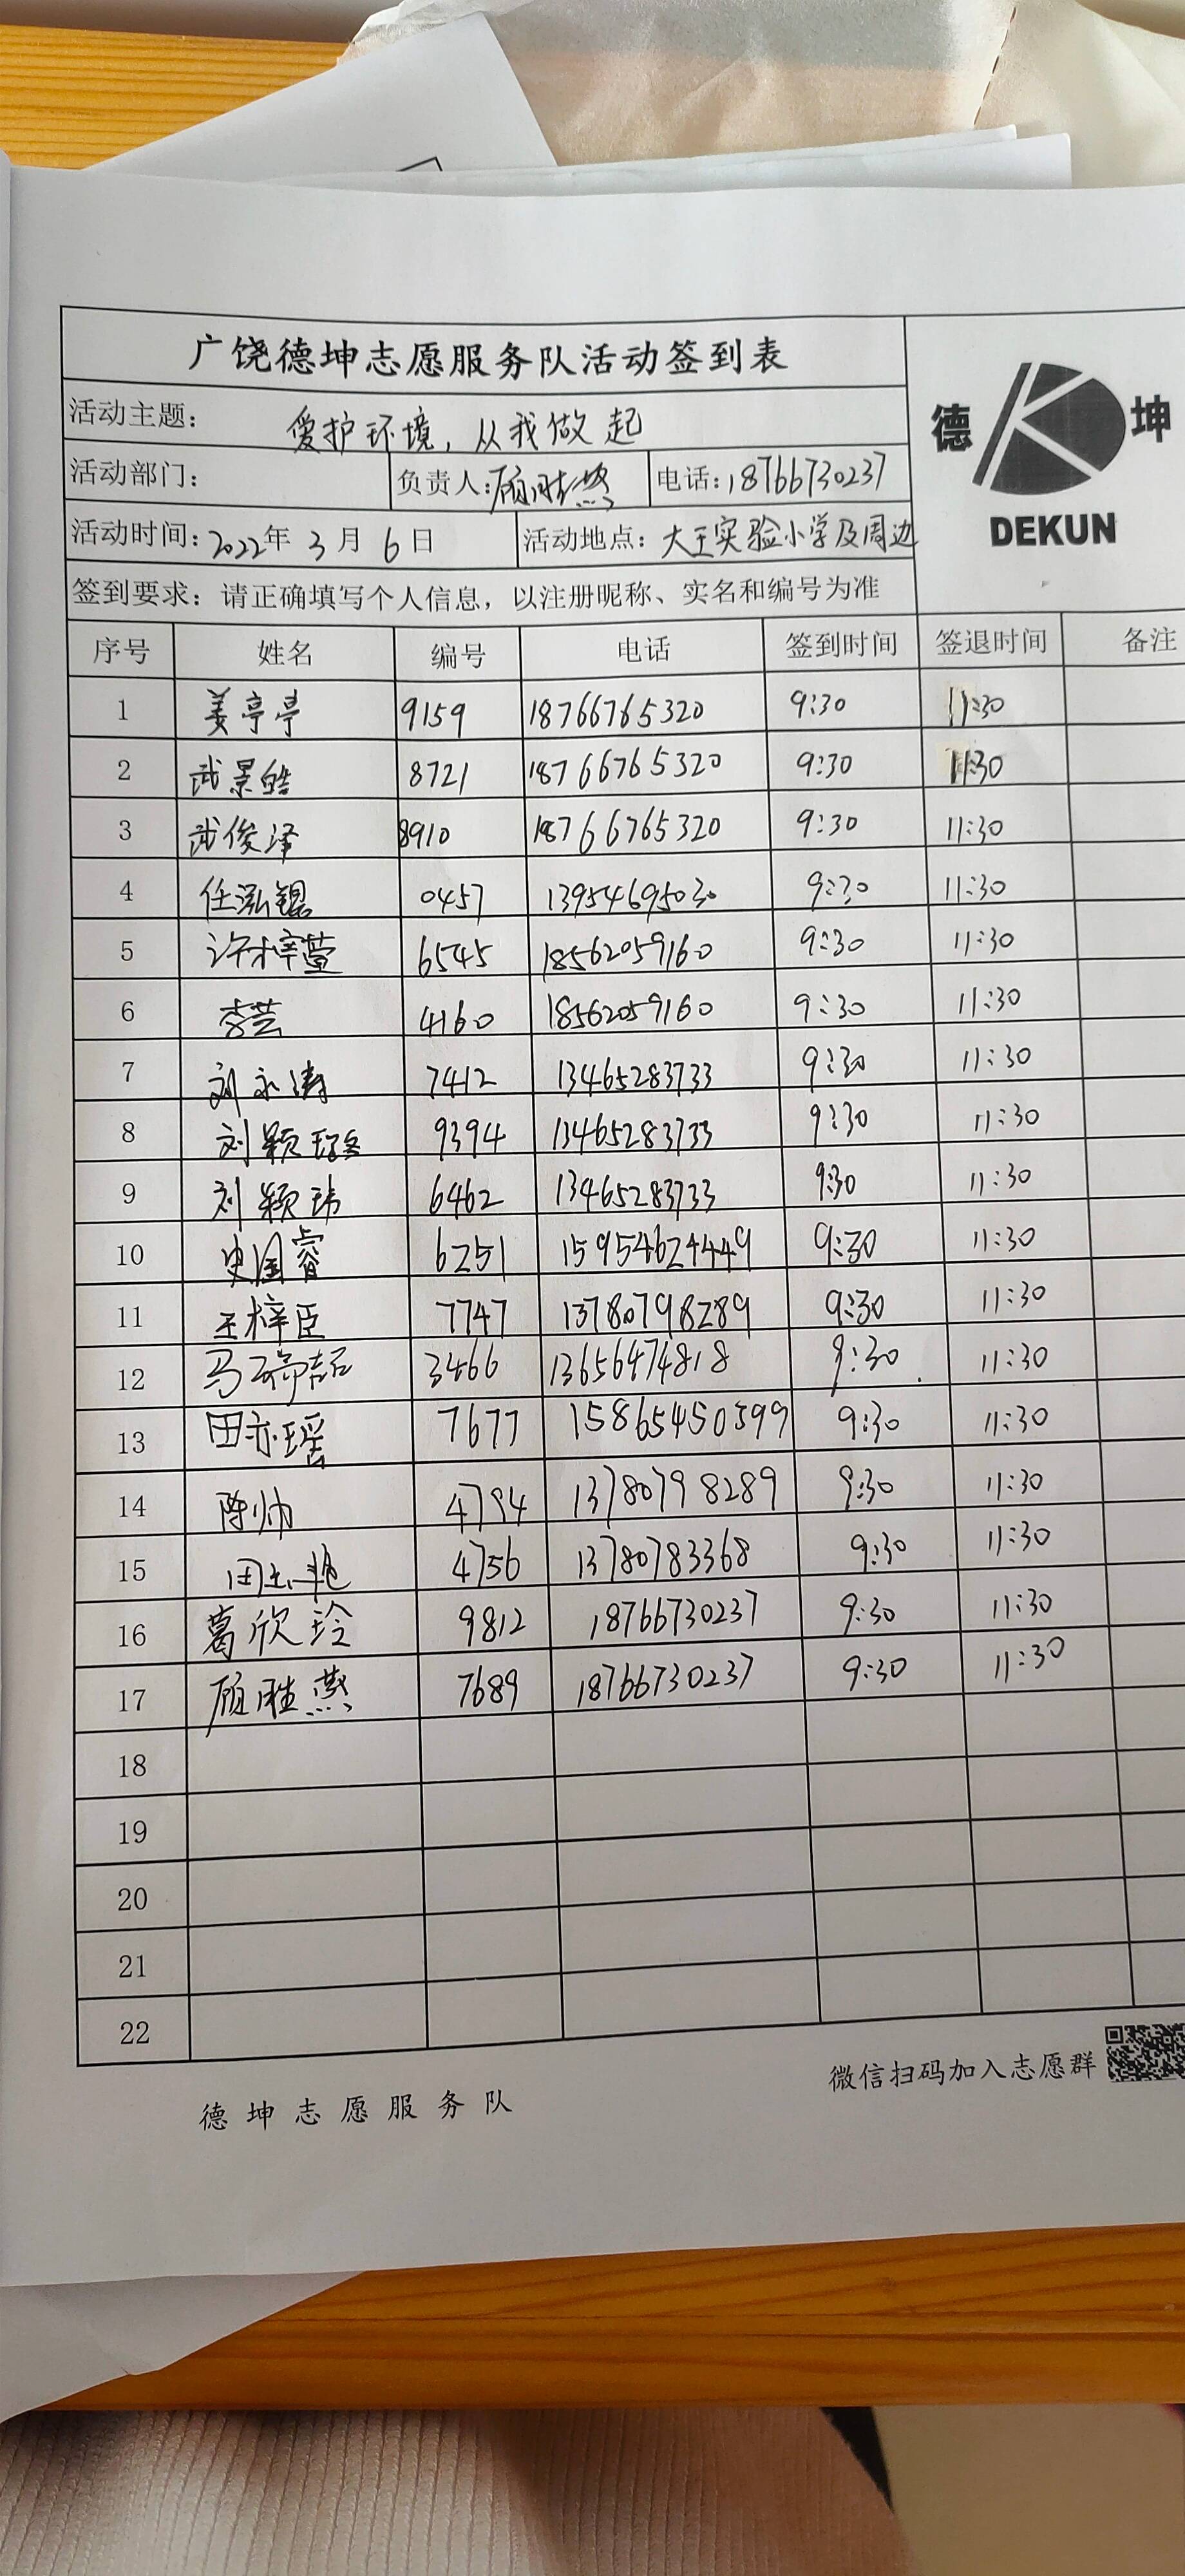 广饶德坤志愿服务队活动签到表
德 坤
DEKUN
活动主题: 爱护环境,从我做起
活动部门: 负责人:顾胜燕 电话:18766730237
活动时间:2022年 3月 6日 活动地点:大王实验小学及周边
签到要求:请正确填写个人信息,以注册昵称、实名和编号为准
序号 姓名 编号 电话 签到时间 签退时间 备注
1 姜亭亭 9159 18766765320 9:30 11:30
2 武景皓 8721 18766765320 9:30 11:30
3 武俊泽 8910 18766765320 9:30 11:30
4 任泓锟 0457 13954695030 9:30 11:30
5 许梓萱 6545 18562059160 9:30 11:30
6 李芸 4160 18562059160 9:30 11:30
7 刘永涛 7412 13465283733 9:30 11:30
8 刘颖 9394 13465283733 9:30 11:30
9 刘颖玮 6462 13465283733 9:30 11:30
10 史国睿 6251 15954624449 9:30 11:30
11 王梓臣 7747 13780798289 9:30 11:30
12 3466 13656474818 9:30 11:30
13 田亦瑶 7677 15865450599 9:30 11:30
14 陈帅 4794 13780798289 9:30 11:30
15 4756 13780783368 9:30 11:30
16 葛欣玲 9812 18766730237 9:30 11:30
17 顾胜燕 7689 18766730237 9:30 11:30
18
19
20
21
22
微信扫码加入志愿群
德坤志愿服务队